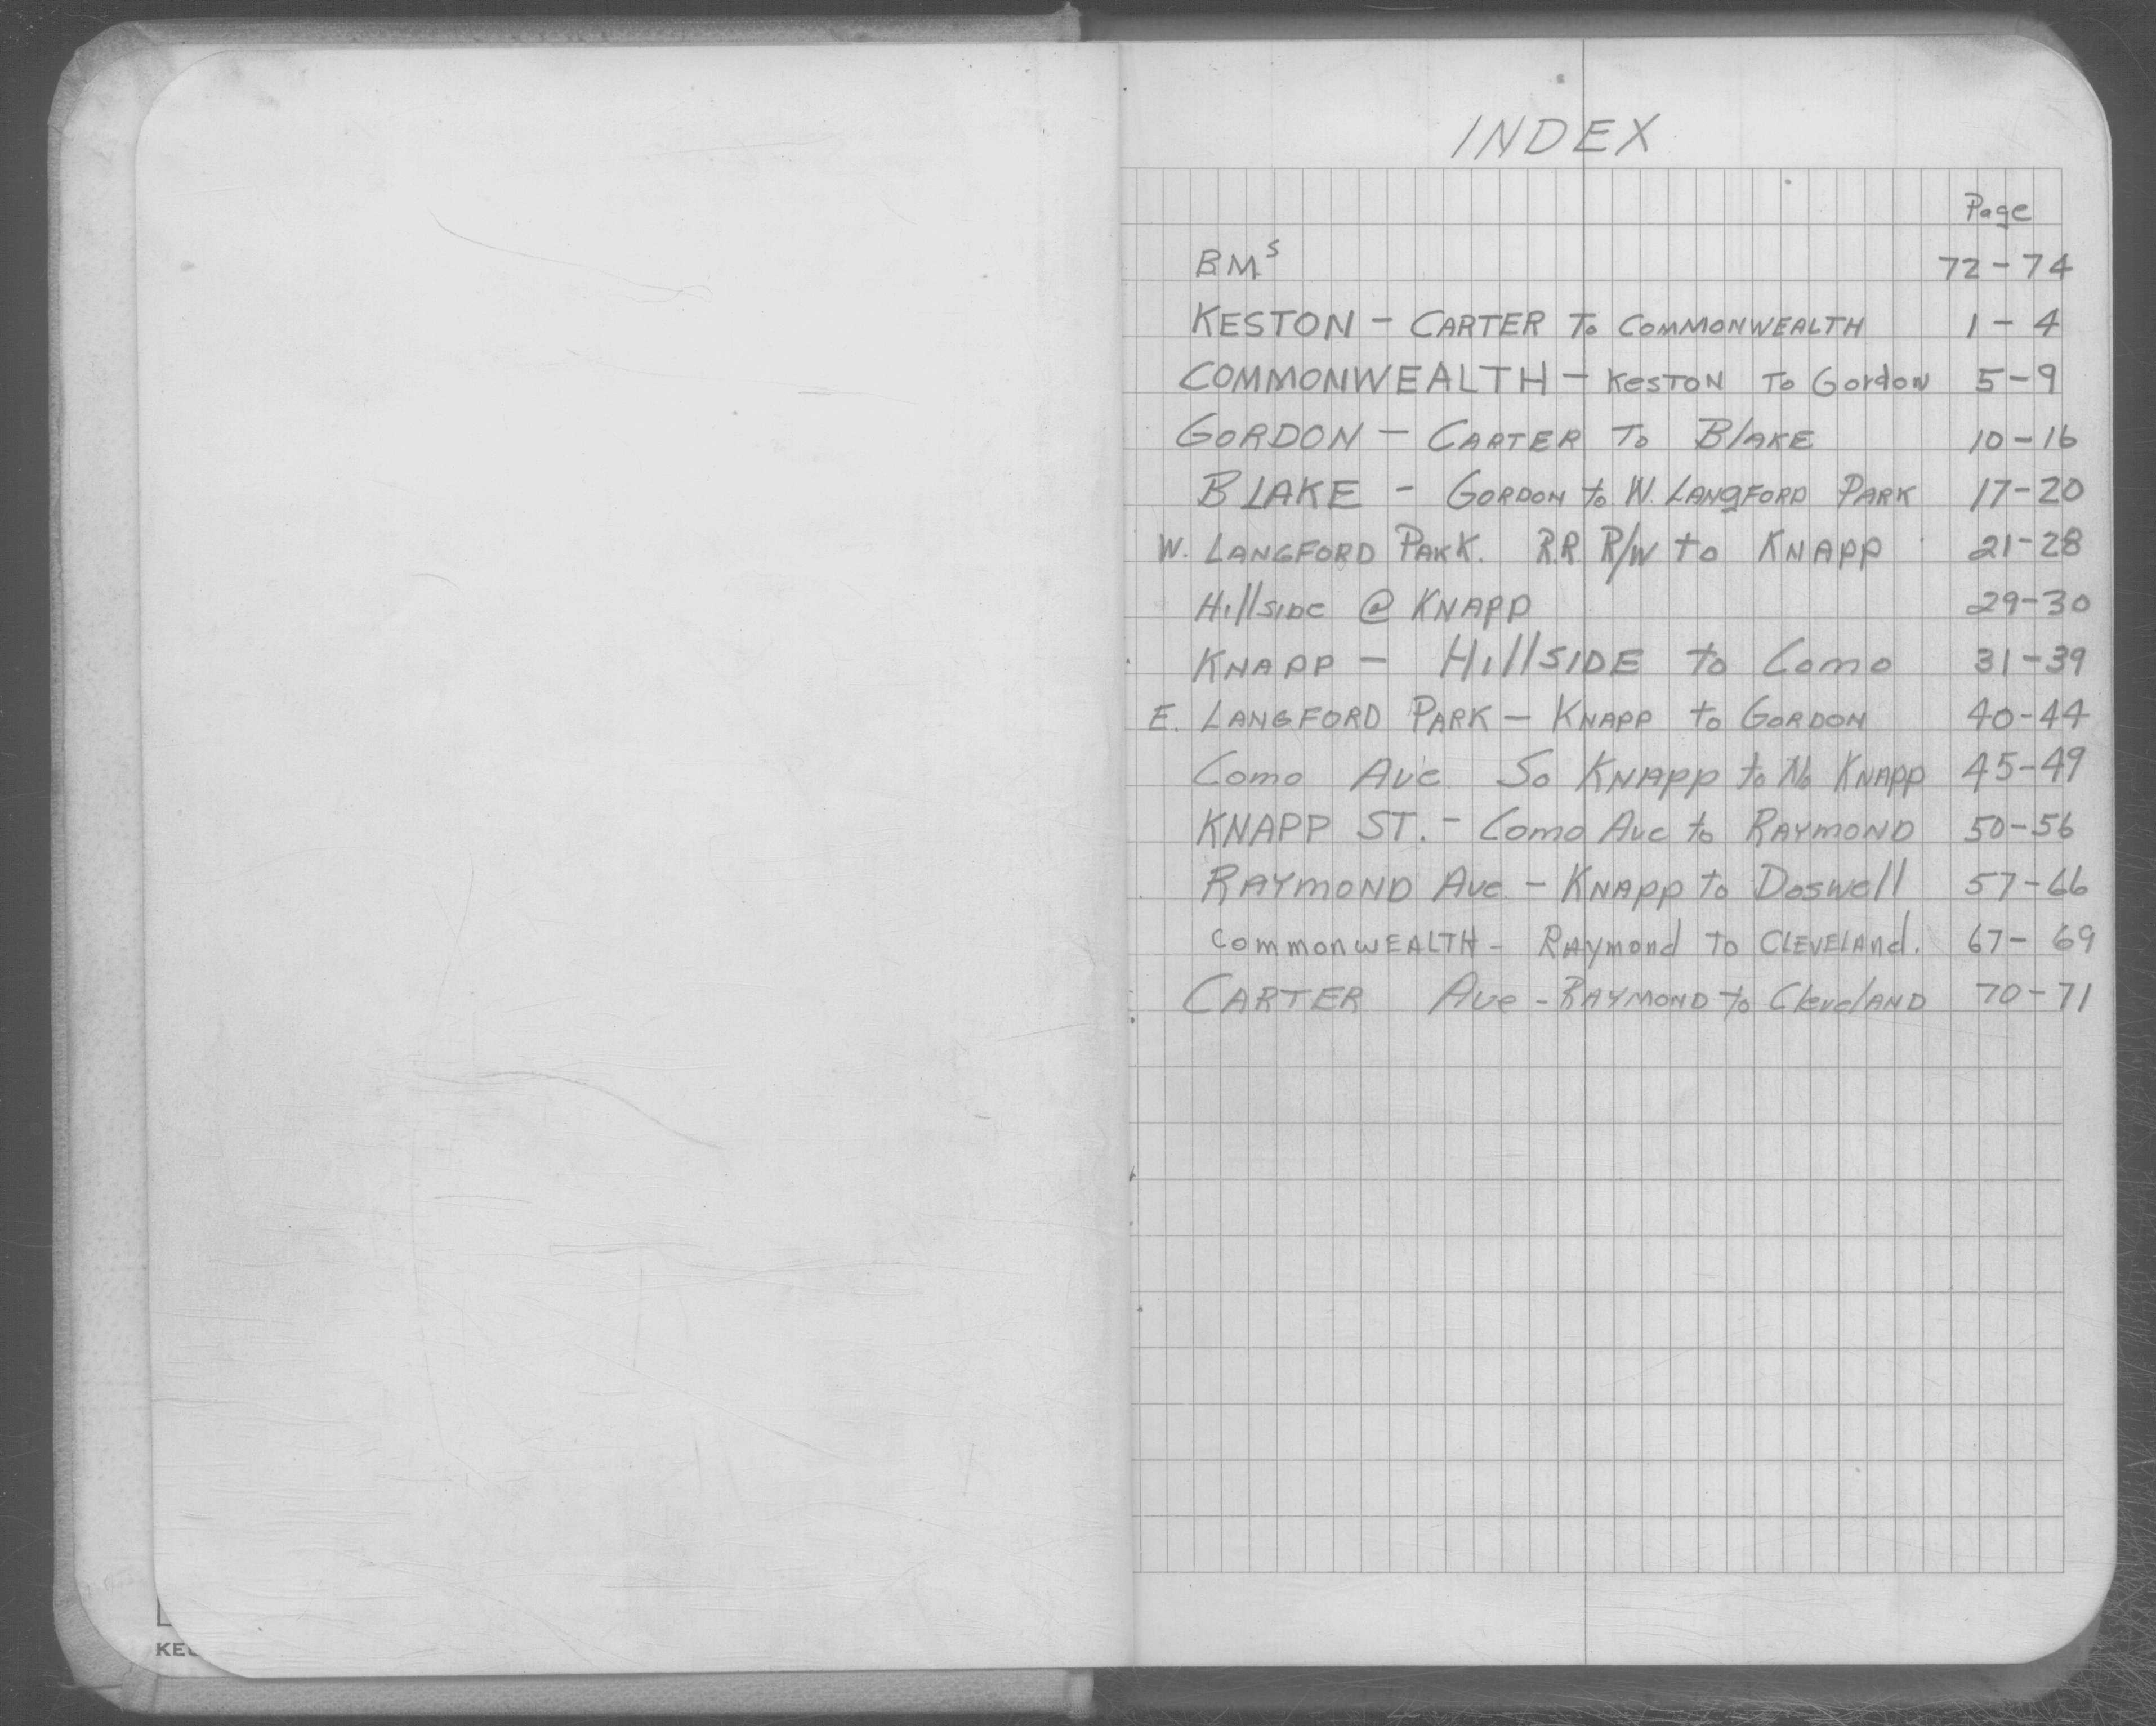 INDEX
Page
BMs 72-74
KESTON - CARTER To COMMONWEALTH 1-4
COMMONWEALTH - KESTON To Gordon 5-9
GORDON - CARTER To Blake 10-16
BLAKE - GORDON to W. LANgFORD PARK 17-20
W. LANGFORD PARK. R.R. R/W to KNAPP 21-28
HillSIDE @ KNAPP 29-30
KNAPP - HillSIDE to Como 31-39
E. LANGFORD PARK - KNAPP to GORDON 40-44
Como Ave So KNAPP to No KNAPP 45-49
KNAPP ST. - Como Ave to RAYMOND 50-56
RAYMOND Ave - KNAPP to Doswell 57-66
CommonWEALTH - RAymond TO CLEVELAnd. 67-69
CARTER Ave - RAYMOND to ClevelAND 70-71